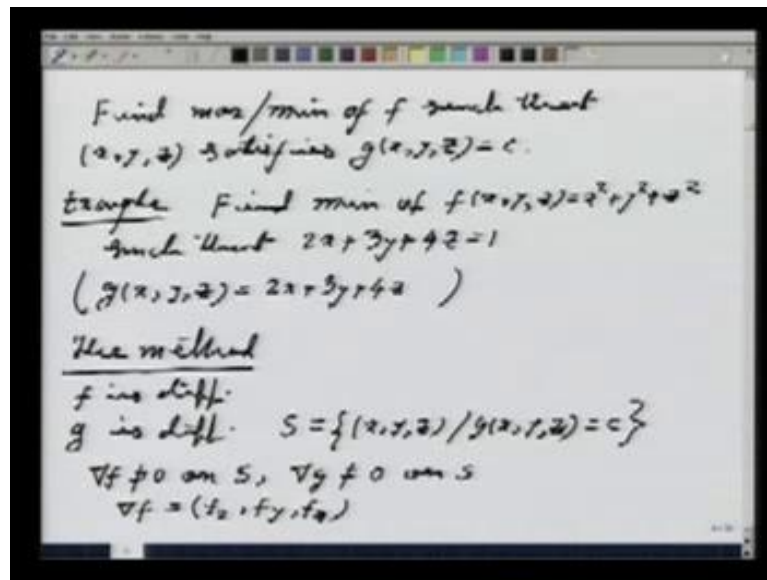 Find max/min of f such that
(x,y,z) satisfies g(x,y,z)=c.
Example Find min of f(x,y,z)=x²+y²+z²
such that 2x+3y+4z=1
(g(x,y,z)=2x+3y+4z)
The method
f is diff.
g is diff. S={(x,y,z)/g(x,y,z)=c}
∇f≠0 on S, ∇g≠0 on S
∇f=(fx,fy,fz)